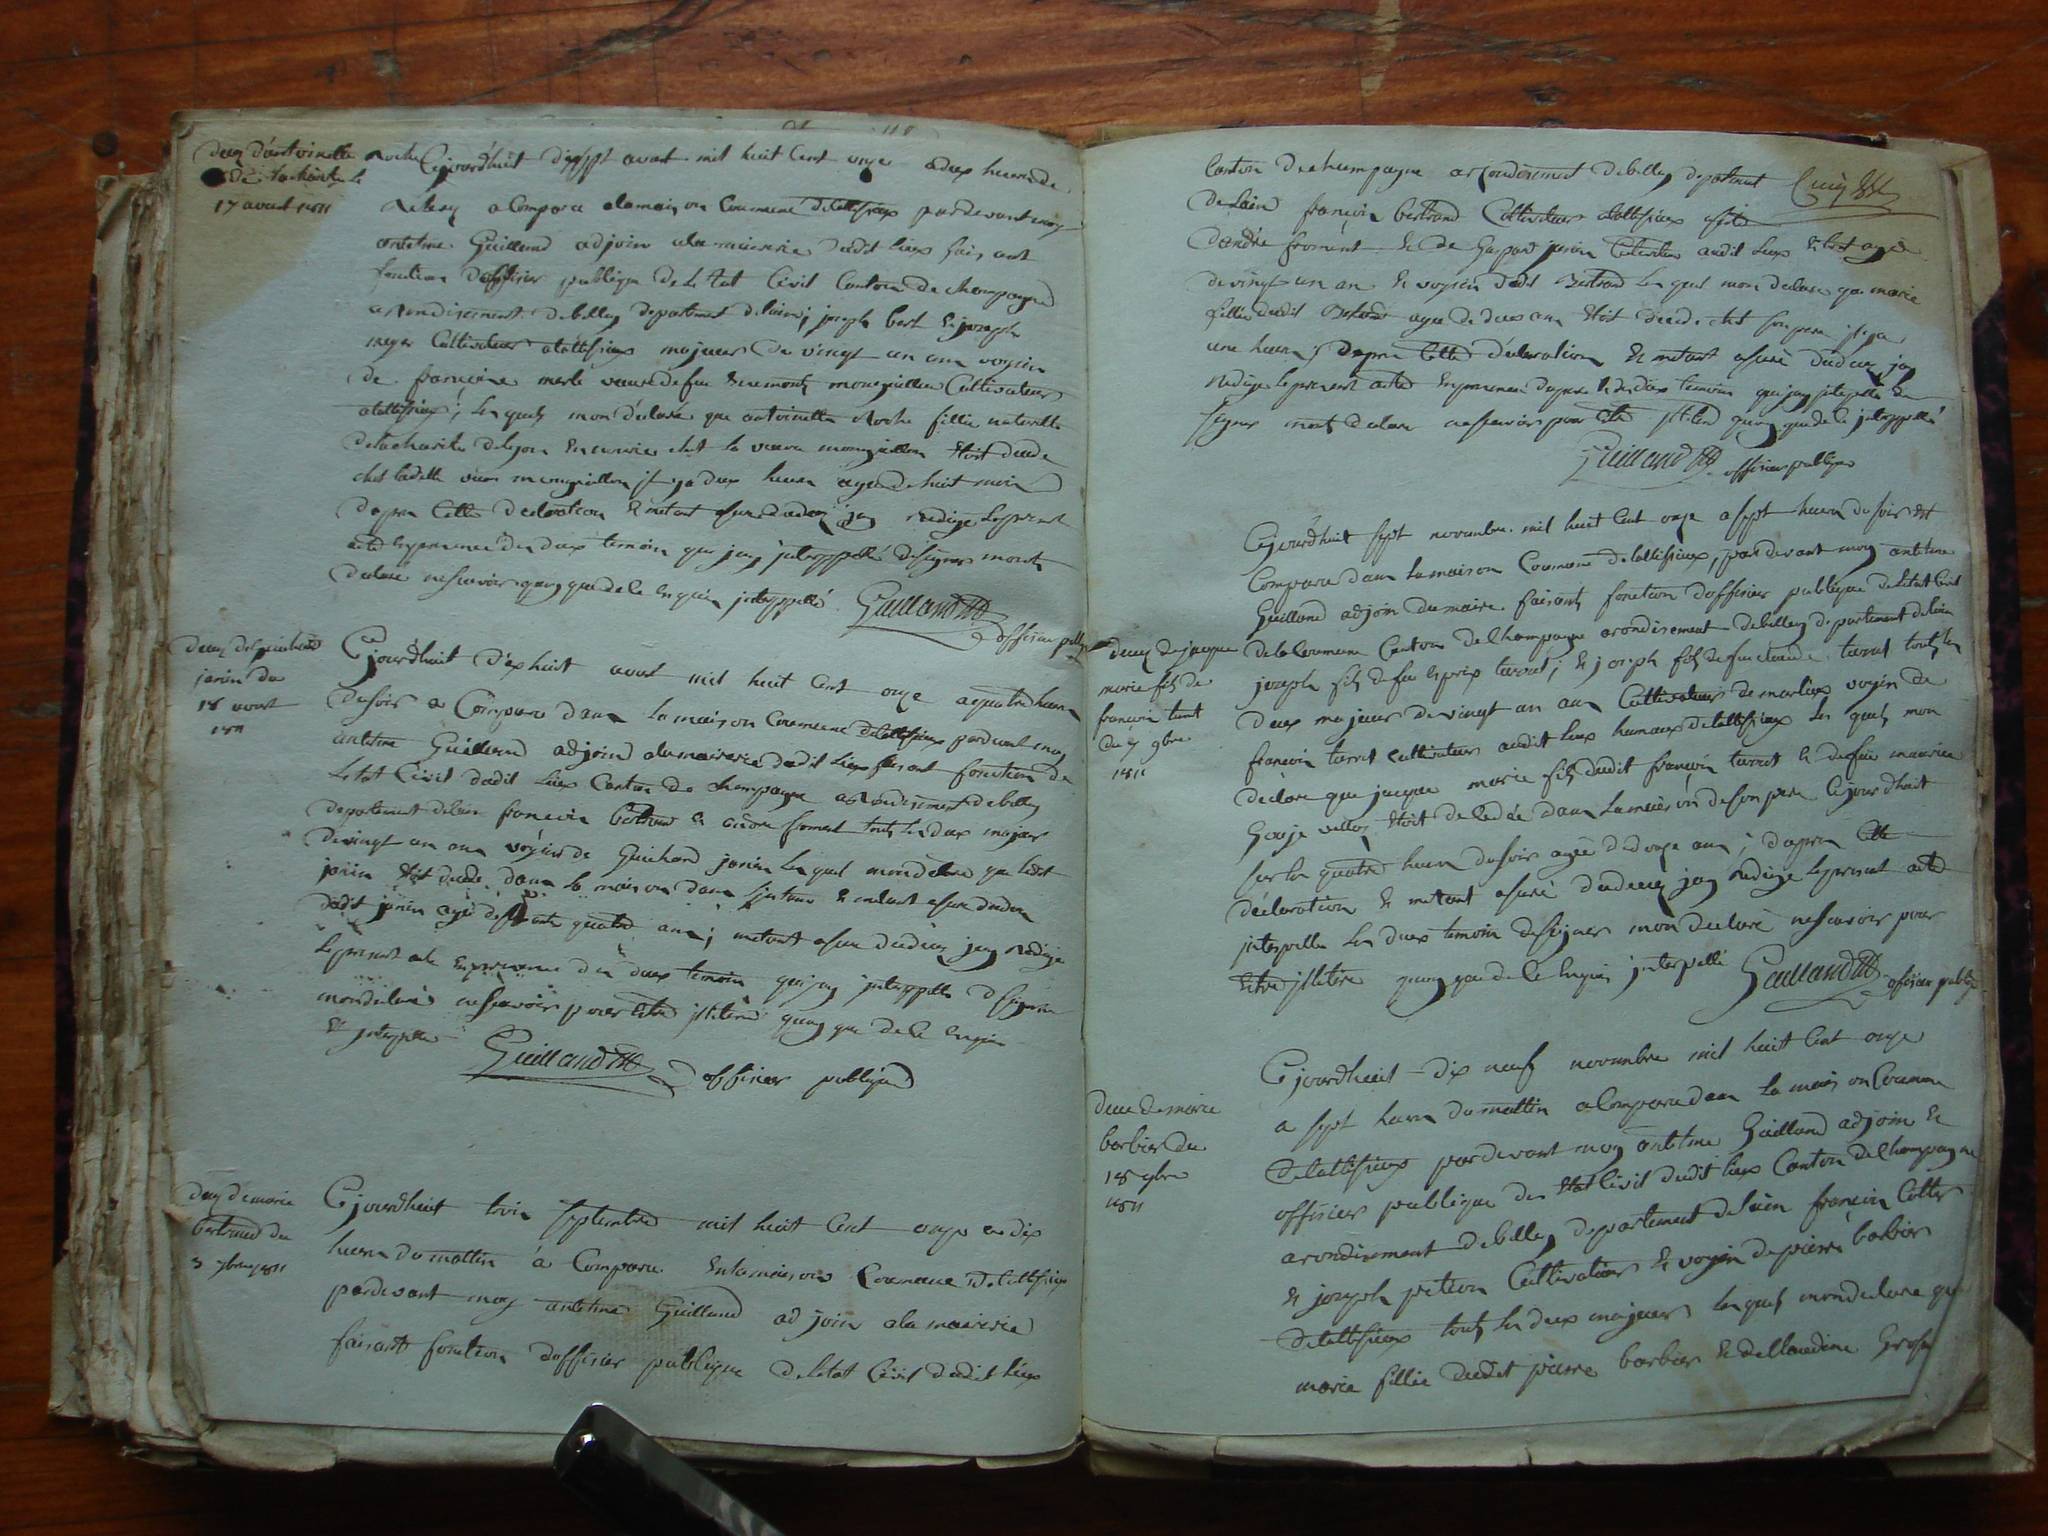 decez d'antoinette Roche
de la charité le
17 avout 1811
Cejourdhuit dixsept avout mil huit Cent onze a deux heure de
Releve a Comparu alamaison Coumune delallisieux pardevant moy
antelme Guilland adjoin ala mairerie dudit Lieux fais ant
fonction dofficier publique de Letat Civil Canton de champagne
arondisement debelley departement delain; joseph bert Et joseph
meyer Cultivateurs alallisieux majeurs de vingt un ans voysin
de francoise merle veuve de feu
alallisieux; Les quels mon déclare que antoinette Roche fillie naturelle
delacharité delyon En nourice chet la veuve monguillon Etoit decede
chet ladelle veuve monguillon il y a deux heure agee de huit mois
dapres Cette declaration Et metant asuré dudecez jay redigé Lepresent
acte Enpresence des deux temoins que jay jnterppellé de signer mont
declaré nesavoir quoy que de le Enquis jnterppellé Guilland
officier publique
decez de Guichard
janin du
18 avout
1811
Cejourdhuit dixhuit avout mil huit Cent onze aquatre heure
dusoir a Comparu dans la maison Coumune delallisieux pardevant moy
antelme Guilland adjoint alamairerie dudit Lieux faisant fonction de
Letat Civil dudit Lieux Canton de champagne arondisement debelley
departement delain francois bertrand Et andre froment touts les deux majeur
devingt un ans voysins de Guichard janin Les quels mondeclare que ledit
janin Etoit decede dans la maison dans Et metant asuré dudecez
dudit janin agé de soixante quatre ans; metant asuré dudecez jay Redigé
Lepresent acte Enpresence des deux temoins quejay jnterppellé de signer
mondeclaré nesavoir pour Etre jlliteré quoy que de le Enquis
Et jnterpelle Guilland officier publique
decez de marie
bertrand du
3 7bre 1811
Cejourdhuit trois septembre mil huit Cent onze a dix
heure du mattin à Comparu Enlamaison Coumune delallisieux
pardevant moy antelme Guilland adjoin alamairerie
faisant fonction dofficier publique de Letat Civil dudit Lieux
Canton dechampagne arondisement debelley departement
delain francois bertrand Cultivateur alallisieux
dandré froment Et de Gaspard janin Cultivateur audit Lieux Et tout agé
de vingt un an Et voysin dudit Bertrand Les quels mon declare que marie
fillie dudit Bertrand agee de deux ans Etoit decede chet son pere jl y a
une heure; dapres Cette déclaration Et metant asuré dudecez jay
redige Lepresent acte Enpresence dupere Et des deux temoins que jay jnterpellé de
signer mont declaré nesavoir pour Etre jlliteré quoy que de le jnterppellé
Guilland officier publique
decez de jacque
marie fils de
francois
du 7 9bre
1811
Cejourdhuit sept novembre mil huit Cent onze a sept heure dusoir Est
Comparu dans Lamaison Coumune delallisieux, par devant moy antelme
Guilland adjoin dumaire faisant fonction dofficier publique de Letat Civil
de la Coumune Canton de Champagne arondisement debelley departement delain
joseph fils de feu Et joseph fils de feu Claude touts les
deux majeurs de vingt un ans Cultivateurs voysin de
francois Cultivateur audit Lieux delallisieux Les quels mon
déclare que jacque marie fils dudit francois
Etoit decedée dans Lamaison deson pere Cejourdhuit
sur les quatre heure dusoir agée de douze ans; dapres Cette
déclaration Et metant asuré dudecez jay redigé Lepresent acte
jnterpelle Les deux temoin de signer mon declaré nesavoir pour
Etre jlliteré quoy que de le Enquis jnterpellé Guilland officier publique
decez de marie
barbier du
18 9bre
1811
Cejourdhuit dix neuf novembre mil huit Cent onze
a sept heure du mattin a Comparu dans la maison Coumune
delallisieux pardevant moy antelme Guilland adjoin Et
officier publique de Etat Civil dudit lieux Canton de Champagne
arondisement debelley departement delain francois
Et joseph petion Cultivateur Et voysin depierre barbier
delallisieux touts les deux majeurs Les quels mondeclare que
marie fillie dudit pierre barbier Et de Claudine